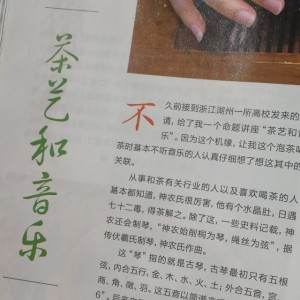 茶艺和音乐
不久前接到浙江湖州一所高校发来的
请，给了我一个命题讲座“茶艺和
乐”。因为这个机缘，让我这个泡茶
茶时基本不听音乐的人认真仔细想了想这其中的
关联。
从事和茶有关行业的人以及喜欢喝茶的人
基本都知道，神农氏很厉害，他有个水晶肚，日遇
七十二毒，得茶解之。除了这，一些史料记载，神
农还会制琴，“神农始削桐为琴，绳丝为弦”，据
传伏羲氏制琴、神农氏作曲。
这“琴”指的就是古琴，古琴最初只有五根
弦，内合五行，金、木、水、火、土；外合五音，宫、
商、角、徵、羽。这五音以简谱